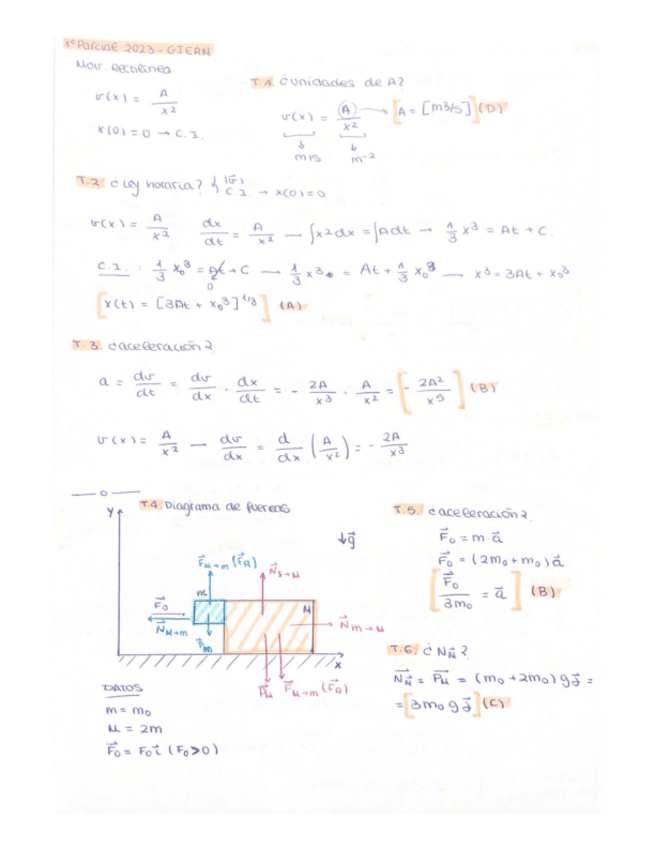 1º Parcial 2023 - GIERM
Mov. Rectilínea
v(x) = A/x2
x(0) = 0 → C.I.
T.1 ¿unidades de A?
v(x) = A/x2 → [A = [m3/s]] (D)
m/s m-2
T.2 ¿Ley horaria? { |v⃗| C.I. → x(0)=0
v(x) = A/x2 dx/dt = A/x2 — ∫x2dx = ∫Adt → 1/3 x3 = At + C.
C.I. : 1/3 x₀3 = At + C — 1/3 x3 = At + 1/3 x₀3 — x3 = 3At + x₀3
0
[x(t) = [3At + x₀3]1/3] (A)
T.3. ¿aceleración?
a = dv/dt = dv/dx · dx/dt = - 2A/x3 · A/x2 = [- 2A2/x5] (B)
v(x) = A/x2 — dv/dx = d/dx (A/x2) = - 2A/x3
— o —
T.4 Diagrama de fuerzas
Y
↓g⃗
F⃗M→m (F⃗R)
N⃗S→M
m
M
F⃗o
N⃗M→m
N⃗m→M
P⃗m
x
P⃗M F⃗M→m (F⃗R)
DATOS
m = mo
M = 2m
F⃗o = Fo i⃗ (Fo>0)
T.5. ¿aceleración?
F⃗o = m·a⃗
F⃗o = (2mo + mo) a⃗
[F⃗o/3mo = a⃗] (B)
T.6. ¿NM?
N⃗M = P⃗M = (mo + 2mo) g j⃗ =
= [3mo g j⃗] (C)